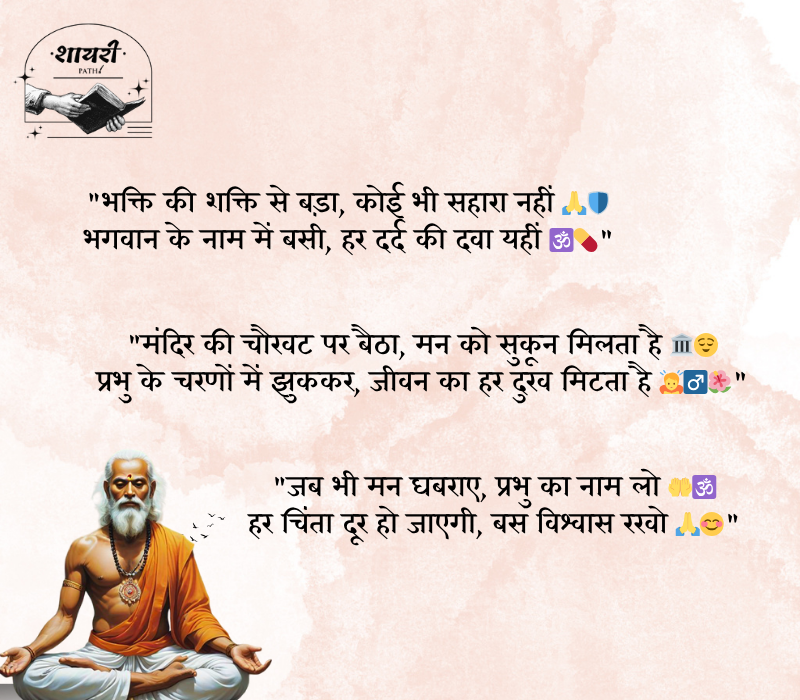 शायरी
PATH
"भक्ति की शक्ति से बड़ा, कोई भी सहारा नहीं 🙏🛡️
भगवान के नाम में बसी, हर दर्द की दवा यहीं 🕉️💊"
"मंदिर की चौखट पर बैठा, मन को सुकून मिलता है 🏛️😌
प्रभु के चरणों में झुककर, जीवन का हर दुख मिटता है 🙇♂️🌺"
"जब भी मन घबराए, प्रभु का नाम लो 🤲🕉️
हर चिंता दूर हो जाएगी, बस विश्वास रखो 🙏😊"